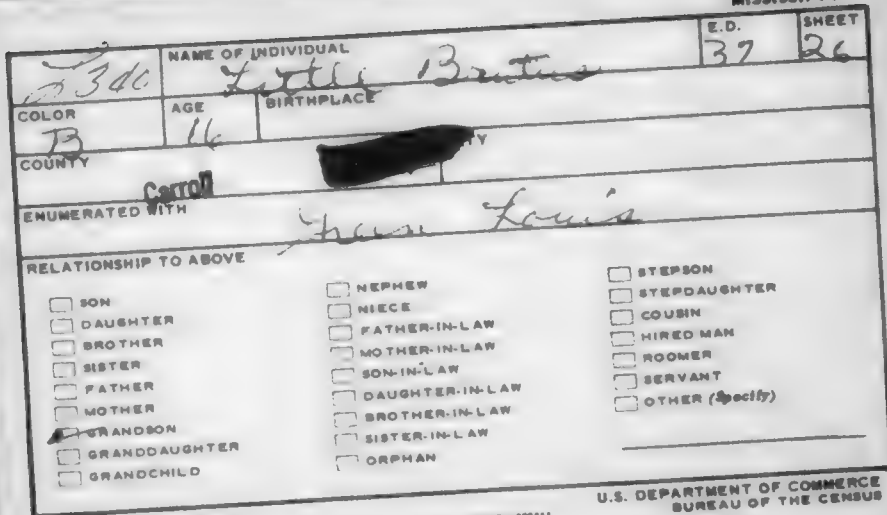 E.D. SHEET
NAME OF INDIVIDUAL
37 26
Brutus
COLOR AGE BIRTHPLACE
B 16
COUNTY
Carroll
ENUMERATED WITH
Louis
RELATIONSHIP TO ABOVE
SON
DAUGHTER
BROTHER
SISTER
FATHER
MOTHER
GRANDSON
GRANDDAUGHTER
GRANDCHILD
NEPHEW
NIECE
FATHER-IN-LAW
MOTHER-IN-LAW
SON-IN-LAW
DAUGHTER-IN-LAW
BROTHER-IN-LAW
SISTER-IN-LAW
ORPHAN
STEPSON
STEPDAUGHTER
COUSIN
HIRED MAN
ROOMER
SERVANT
OTHER (Specify)
U.S. DEPARTMENT OF COMMERCE
BUREAU OF THE CENSUS